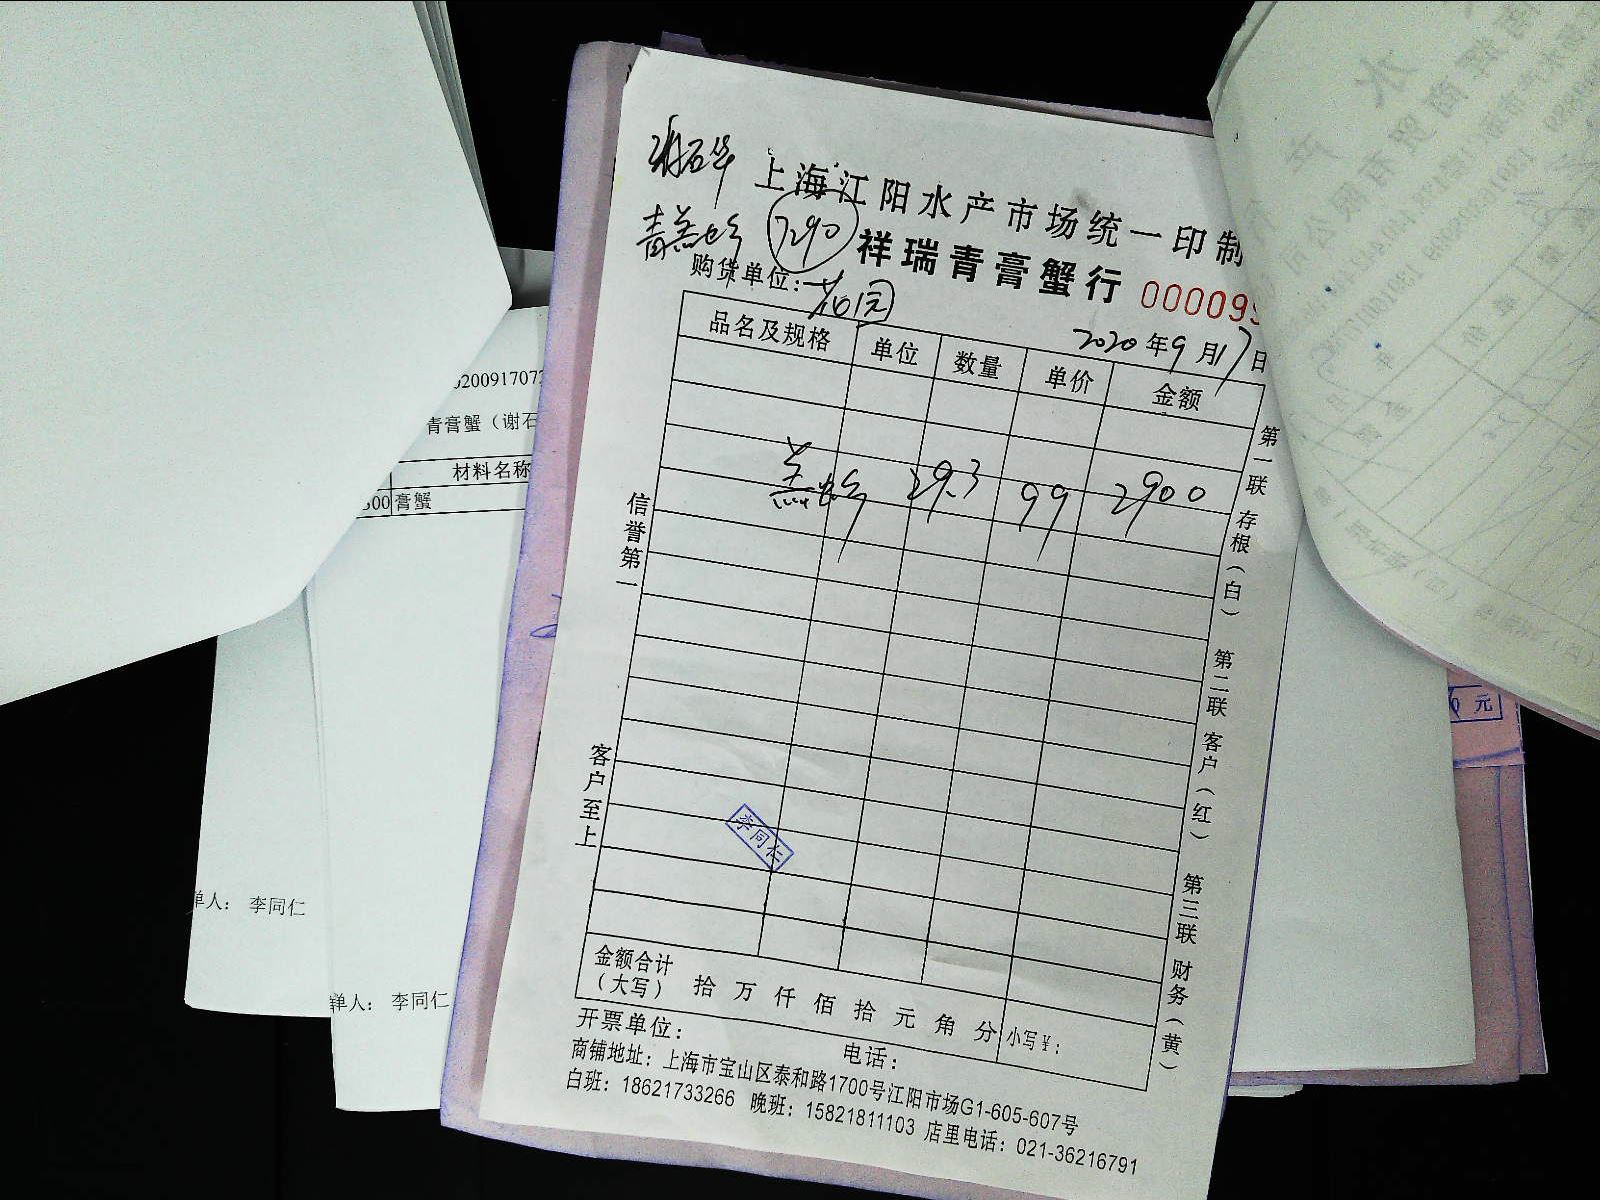 上海江阳水产市场统一印制
7290
祥瑞青膏蟹行 000009
购货单位：
2020年9月17日
品名及规格 单位 数量 单价 金额
29.3 99 2900
信誉第一
客户至上
第一联 存根（白） 第二联 客户（红） 第三联 财务（黄）
李同仁
金额合计（大写） 拾 万 仟 佰 拾 元 角 分 小写￥：
开票单位： 电话：
商铺地址：上海市宝山区泰和路1700号江阳市场G1-605-607号
白班：18621733266 晚班：15821811103 店里电话：021-36216791
20091707
青膏蟹（谢石
材料名称
00 膏蟹
单人： 李同仁
单人： 李同仁
元